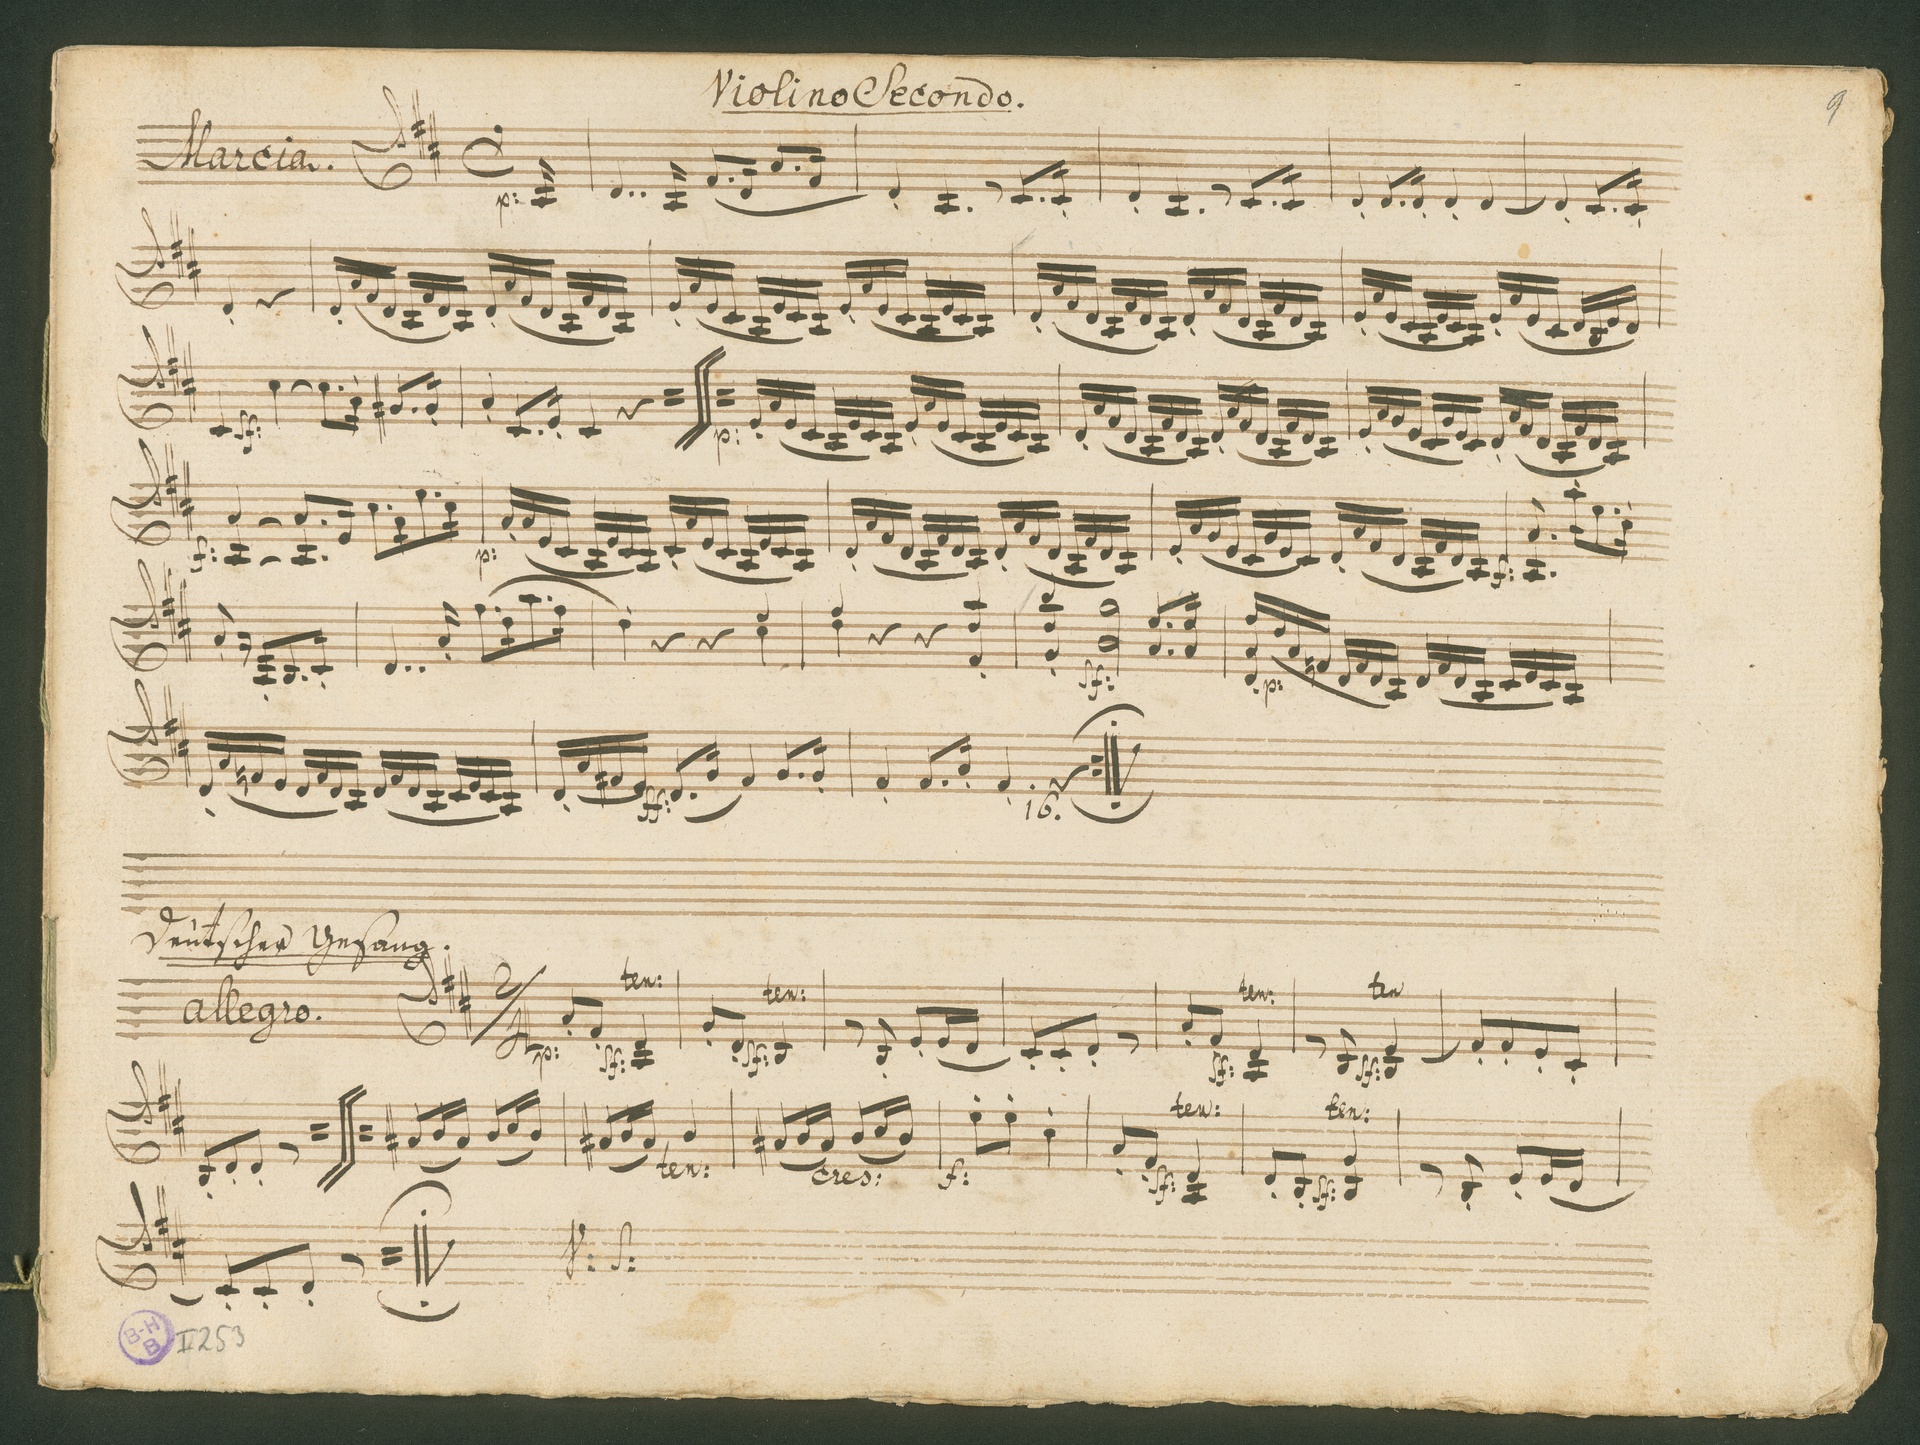 Violino Secondo.
9
Marcia.
p:
sf:
p:
f:
p:
f:
sf:
p:
sf:
16.
Deutscher Gesang.
ten:
ten:
ten:
ten
allegro.
2/4
p:
sf:
sf:
sf:
sf:
ten:
ten:
ten:
cres:
f:
sf:
sf:
V: S:
B-H
B
II 253